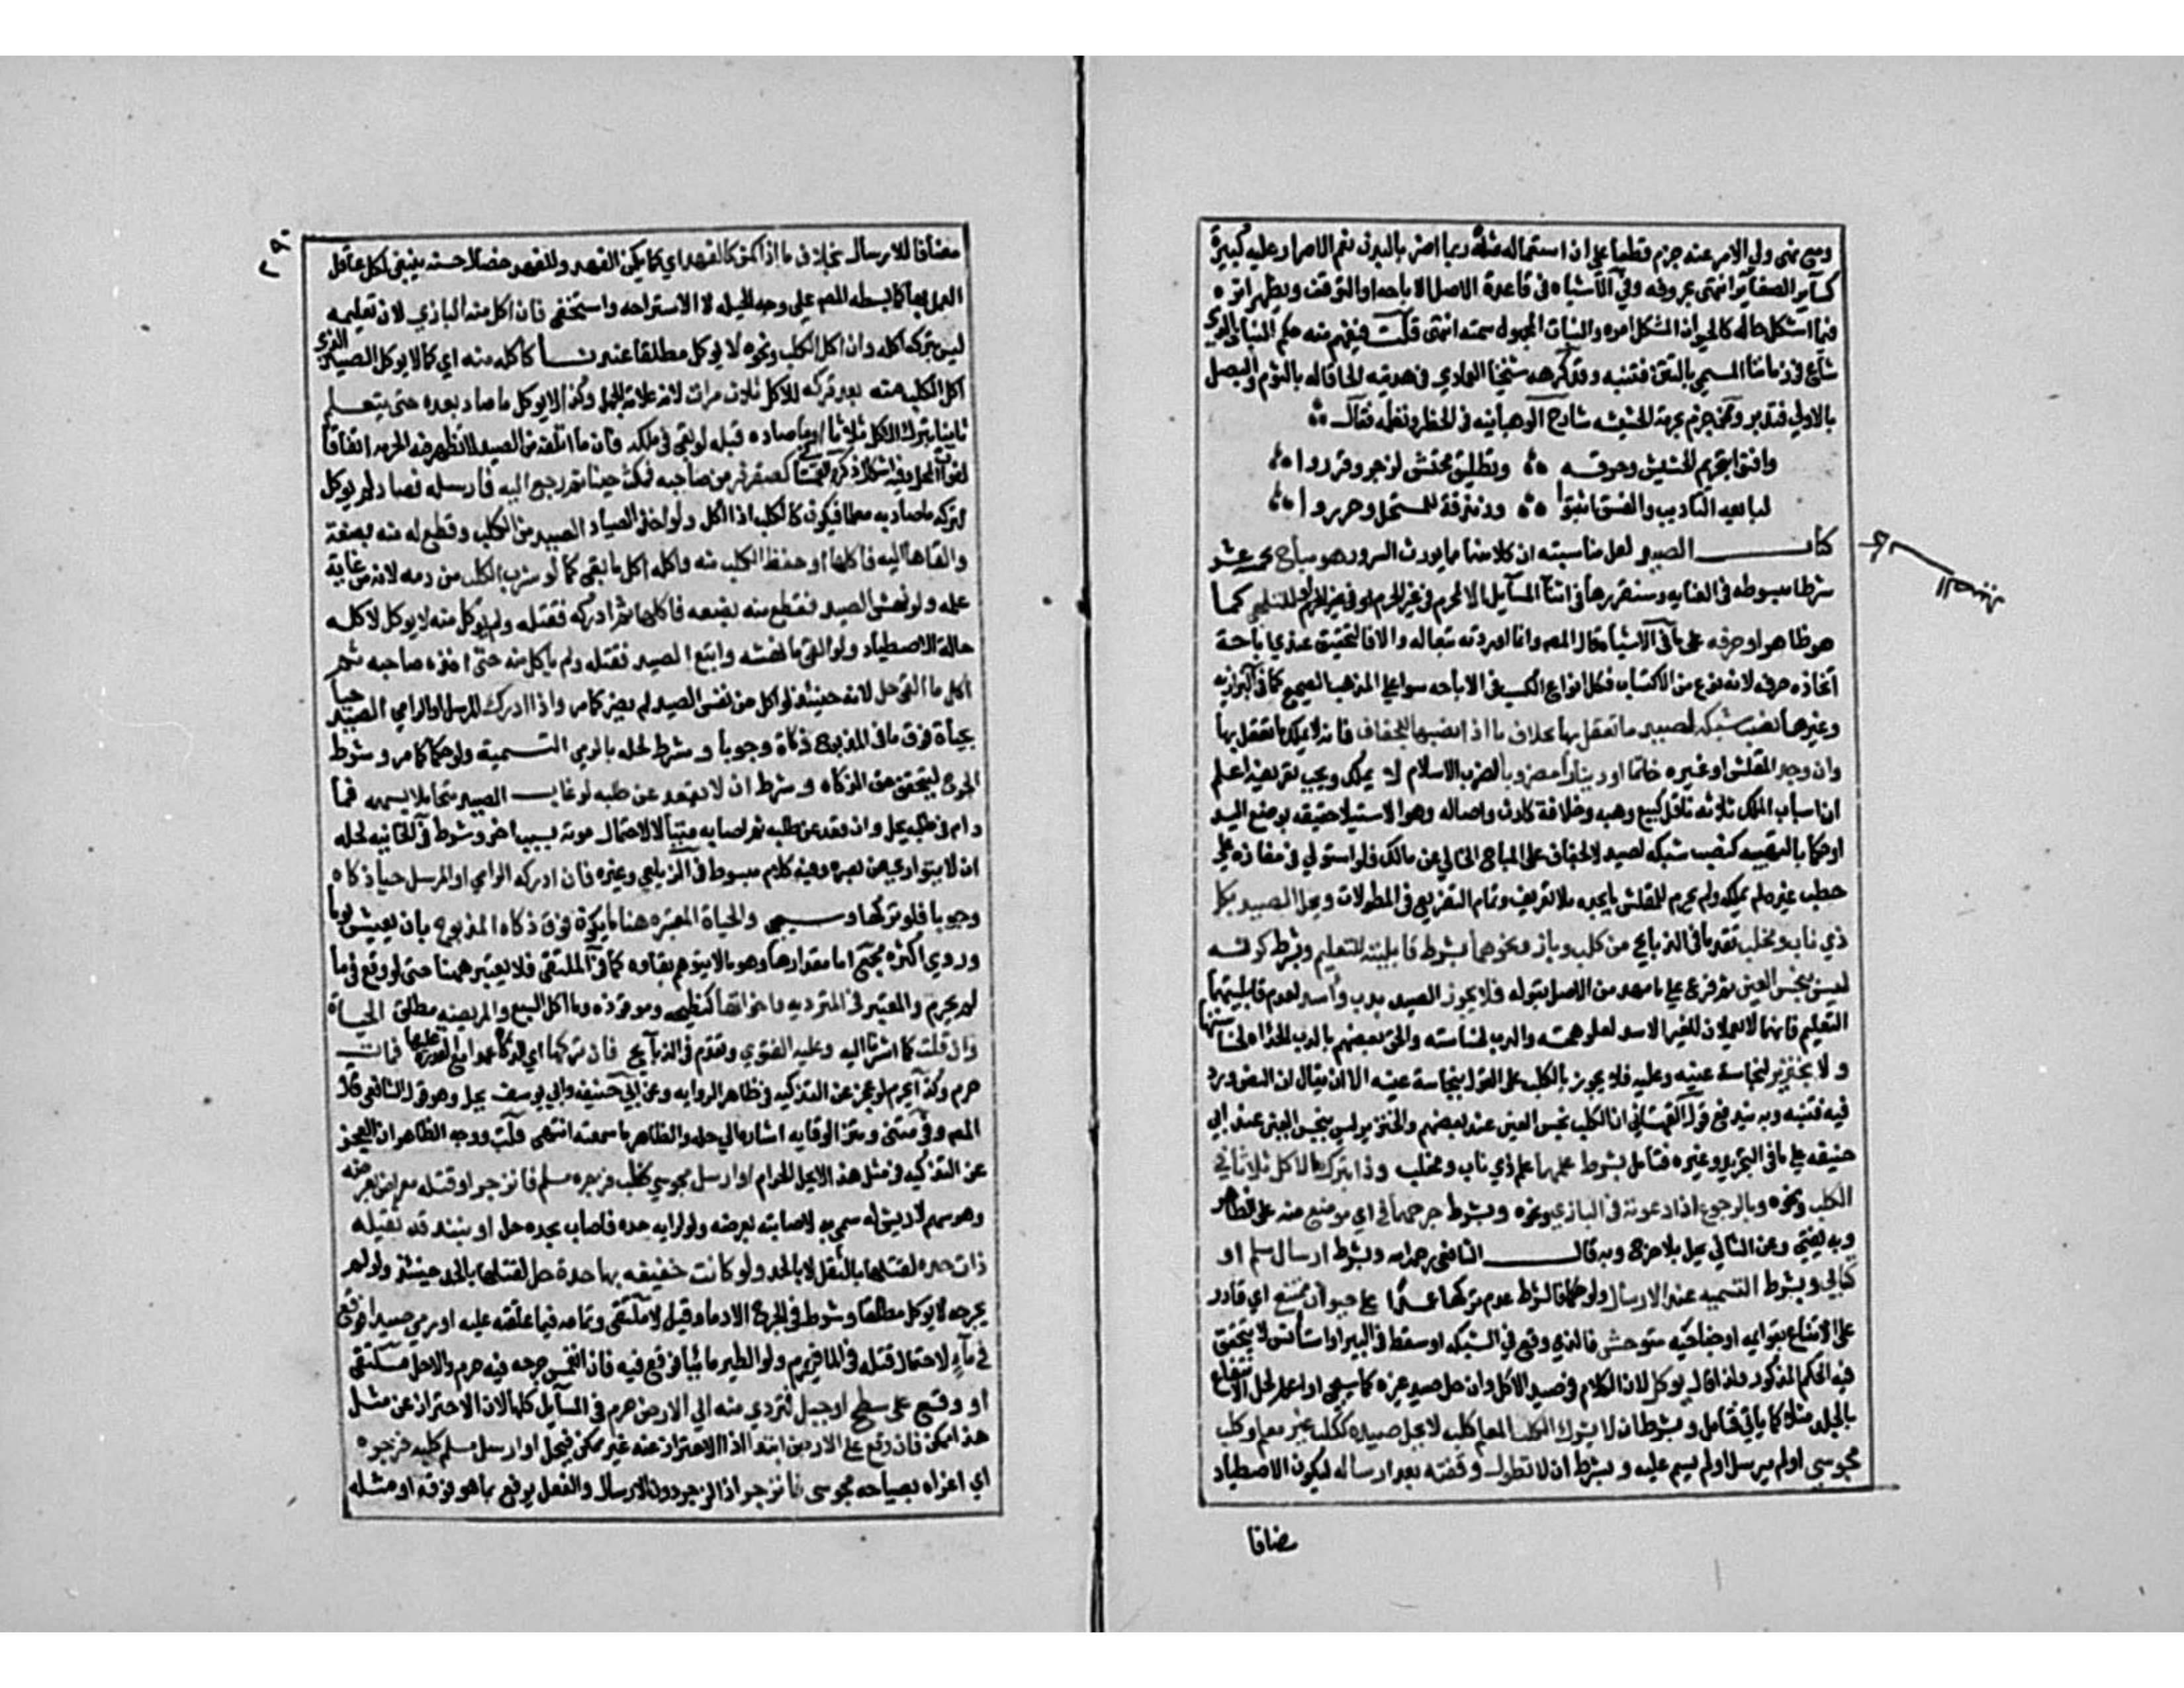 ومع نهي ولي الامر عنه حرم قطعا على ان استعماله مثله ربما اضر بالبدن نعم الاصرار عليه كبيرة
كساير الصغاير انتهى بحروفه وفي الاشباه في قاعدة الاصل الاباحه او التوقف ويظهر اثره
فيما اشكل حاله كالحيوان المشكل امره والنبات المجهول سمته انتهى قلت فيفهم منه حكم النبات الذي
شاع في زماننا المسمى بالتتن فتنبه وقد كرهه شيخنا العمادي في هديته الحاقا له بالثوم والبصل
بالاولى فتدبر وممن جزم بحرمة الحشيشه شارح الوهبانيه في الحظر ونظمه فقال
وافتوا بتحريم الحشيش وحرقه وتطليق محتش لزجر وقرروا
لبايعه التاديب والفسق اثبتوا وزندقة للمستحل وحرروا
كتاب الصيد لعل مناسبته ان كلا منهما مما يورث السرور هو مباح بخمسة عشر
شرطا مبسوطه في العنايه وسنقررها في اثناء المسايل الا لمحرم في غير الحرم او للتلهي كما
هو ظاهر او حرفه على ما في الاشباه قال المص وانما زدته تبعا له والا فالتحقيق عندي اباحة
اتخاذه حرفه لانه نوع من الاكتساب وكل انواع الكسب في الاباحه سوا على المذهب الصحيح كما في البزازيه
وغيرها نصب شبكه لصيد ما تعقل بها بخلاف ما اذا نصبها للجفاف فانه لا يملك ما تعقل بها
وان وجد المقلش او غيره خاتما او دينارا مضروبا بضرب الاسلام لا يملكه ويجب تعريفه اعلم
ان اسباب الملك ثلاثه ناقل كبيع وهبه وخلافة كارث واصاله وهو الاستيلا حقيقه بوضع اليد
او حكما بالتهيئه كنصب شبكه لصيد لا لجفاف على المباح الخالي عن مالك فلو استولى في مفازه على
حطب غيره لم يملكه ولم يحل للمقلش ما يجده بلا تعريف وتمام التفريع في المطولات ويحل الصيد بكل
ذي ناب ومخلب تقدما في الذبايح من كلب وباز ونحوهما بشرط قابلية التعليم وبشرط كونه
ليس بنجس العين ثم فرع على ما مهد من الاصل بقوله فلا يجوز الصيد بدب واسد لعدم قابليتهما
التعليم فانهما لا يعملان للغير الاسد لعلو همته والدب لخساسته والحق بعضهم بالدب الحداه لخساستها
ولا بخنزير لنجاسة عينه وعليه فلا يجوز بالكلب على القول بنجاسة عينه الا ان يقال ان النص ورد
فيه فتنبه وبه يندفع قول القهستاني ان الكلب نجس العين عند بعضهم والخنزير ليس بنجس العين عند ابي
حنيفه على ما في التجريد وغيره فتامل بشرط علمهما علم ذي ناب ومخلب وذا بترك الاكل ثلاثا في
الكلب ونحوه وبالرجوع اذا دعوته في البازي ونحوه وبشرط جرحهما في اي موضع منه على الظاهر
وبه يفتى وعن الثاني يحل بلا جرح وبه قال الشافعي وبشرط ارسال مسلم او
كتابي وبشرط التسميه عند الارسال ولو حكما فالشرط عدم تركها عمدا على حيوان ممتنع اي قادر
على الامتناع بقوايمه او جناحيه متوحش فالذي وقع في الشبكه او سقط في البير او استانس لا يتحقق
فيه الحكم المذكور ولذا قال يوكل لان الكلام في صيد الاكل وان حل صيد غيره كما سيجي او اعم لحل الانتفاع
بالجلد مثلا كما ياتي فتامل وبشرط ان لا يشرك الكلب المعلم كلب لا يحل صيده ككلب غير معلم وكلب
مجوسي او لم يرسل او لم يسم عليه وبشرط ان لا تطول وقفته بعد ارساله ليكون الاصطياد
مضافا
٢٩٠
مضافا للارسال بخلاف ما اذا كمن كالفهد اي كما يكمن الفهد وللفهد خصال حسنه ينبغي لكل عاقل
العمل بها كما بسطه المص على وجه الحيله لا الاستراحه واستخفى فان اكل منه البازي لان تعليمه
ليس بترك اكله وان اكل الكلب ونحوه لا يوكل مطلقا عندنا كاكله منه اي كما لا يوكل الصيد الذي
اكل الكلب منه بعد تركه للاكل ثلاث مرات لانه علامة الجهل وكذا لا يوكل ما صاد بعده حتى يتعلم
ثانيا بترك الاكل ثلاثا او ما صاده قبله لو بقي في ملكه فان ما اتلفه من الصيد لا تظهر فيه الحرمه اتفاقا
لفوات المحل وفيه اشكال ذكره القهستاني كصقر فر من صاحبه فمكث حينا ثم رجع اليه فارسله فصاد لم يوكل
لتركه ما صار به معلما فيكون كالكلب اذا اكل ولو اخذ الصياد الصيد من الكلب وقطع له منه بضعة
والقاها اليه فاكلها او خطف الكلب منه واكله اكل ما بقي كما لو شرب الكلب من دمه لانه من غاية
علمه ولو نهش الصيد فقطع منه بضعه فاكلها ثم ادركه فقتله ولم يوكل منه لا يوكل لاكله
حالة الاصطياد ولو القى ما نهشه واتبع الصيد فقتله ولم ياكل منه حتى اخذه صاحبه ثم
اكل ما القى حل لانه حينئذ لو اكل من نفس الصيد لم يضر كما مر واذا ادرك المرسل او الرامي الصيد حيا
بحياة فوق ما في المذبوح ذكاة وجوبا وشرط لحله بالرمي التسمية ولو حكما كما مر وشرط
الجرح ليتحقق معنى الذكاه وشرط ان لا يقعد عن طلبه لو غاب الصيد متحاملا بسهمه فما
دام في طلبه يحل وان قعد عن طلبه ثم اصابه ميتا لا لاحتمال موته بسبب اخر وشرط في الخانيه لحله
ان لا يتوارى عن بصره وفيه كلام مبسوط في الزيلعي وغيره فان ادركه الرامي او المرسل حيا ذكاه
وجوبا فلو تركها وسيجي والحياة المعتبره هنا ما يكون فوق ذكاه المذبوح بان يعيش يوما
وروي اكثره مجتبى اما مقدارها وهو ما لا يتوهم بقاوه كما في الملتقى فلا يعتبر ههنا حتى لو وقع في ما
لم يحرم والمعتبر في المترديه واخواتها كنطيحه وموقوذه وما اكل السبع والمريضه مطلق الحياة
وان قلت كما اشرنا اليه وعليه الفتوى وتقدم في الذبايح فان تركها اي الذكاه عمدا مع القدره عليها فمات
حرم وكذا يحرم لو عجز عن التذكيه في ظاهر الروايه وعن ابي حنيفه وابي يوسف يحل وهو قول الشافعي قال
المص وفي متني ومتن الوقايه اشارة الى حله والظاهر ما سمعته انتهى قلت ووجه الظاهر ان العجز
عن التذكيه في مثل هذا لا يحل الحرام او ارسل مجوسي كلبه فزجره مسلم فانزجر او قتله معراض بعرضه
وهو سهم لا ريش له سمي به لاصابته بعرضه ولو لرايه حده فاصاب بحده حل او بندقه ثقيله
ذات حده لقتلها بالثقل لا بالحد ولو كانت خفيفه بها حدة حل لقتلها بالحد حينئذ ولو لم
يجرحه لا يوكل مطلقا وشرط في الجرح الادما وقيل لا ملتقى وتمامه فيما علقته عليه او رمى صيدا فوقع
في ماء لاحتمال قتله في الما فيحرم ولو الطير مائيا فوقع فيه فان انغمس جرحه فيه حرم والا حل ملتقى
او وقع على سطح او جبل فتردى منه الى الارض حرم في المسايل كلها لان الاحتراز عن مثل
هذا ممكن فان وقع على الارض ابتدا اذ الاحتراز عنه غير ممكن فيحل او ارسل مسلم كلبه فزجره
اي اغراه بصياحه مجوسي فانزجر اذ الزجر دون الارسال والفعل يرفع بما هو فوقه او مثله